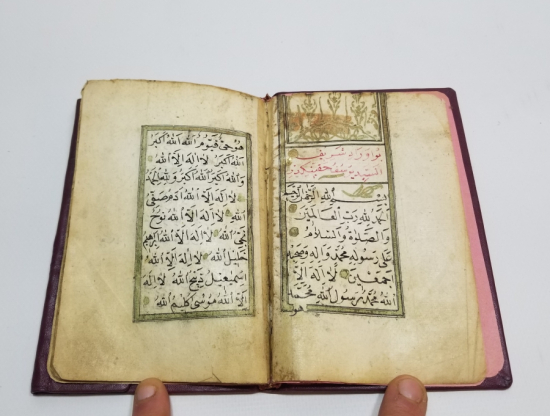 بو اوراد شريف
السيد يوسف حضرتلريندر
بسم الله الرحمن الرحيم
الحمد لله رب العالمين
والصلوة والسلام
على رسوله محمد واله وصحبه
اجمعين لا اله الا
الله محمد رسول الله
هو حى قيوم الله الله اكبر
الله اكبر لا اله الا الله
والله اكبر الله اكبر ولله الحمد
لا اله الا الله ادم صفى
الله لا اله الا الله نوح
نجى الله لا اله الا الله ابرهيم
خليل الله لا اله الا الله
اسمعيل ذبيح الله لا اله
الا الله موسى كليم الله